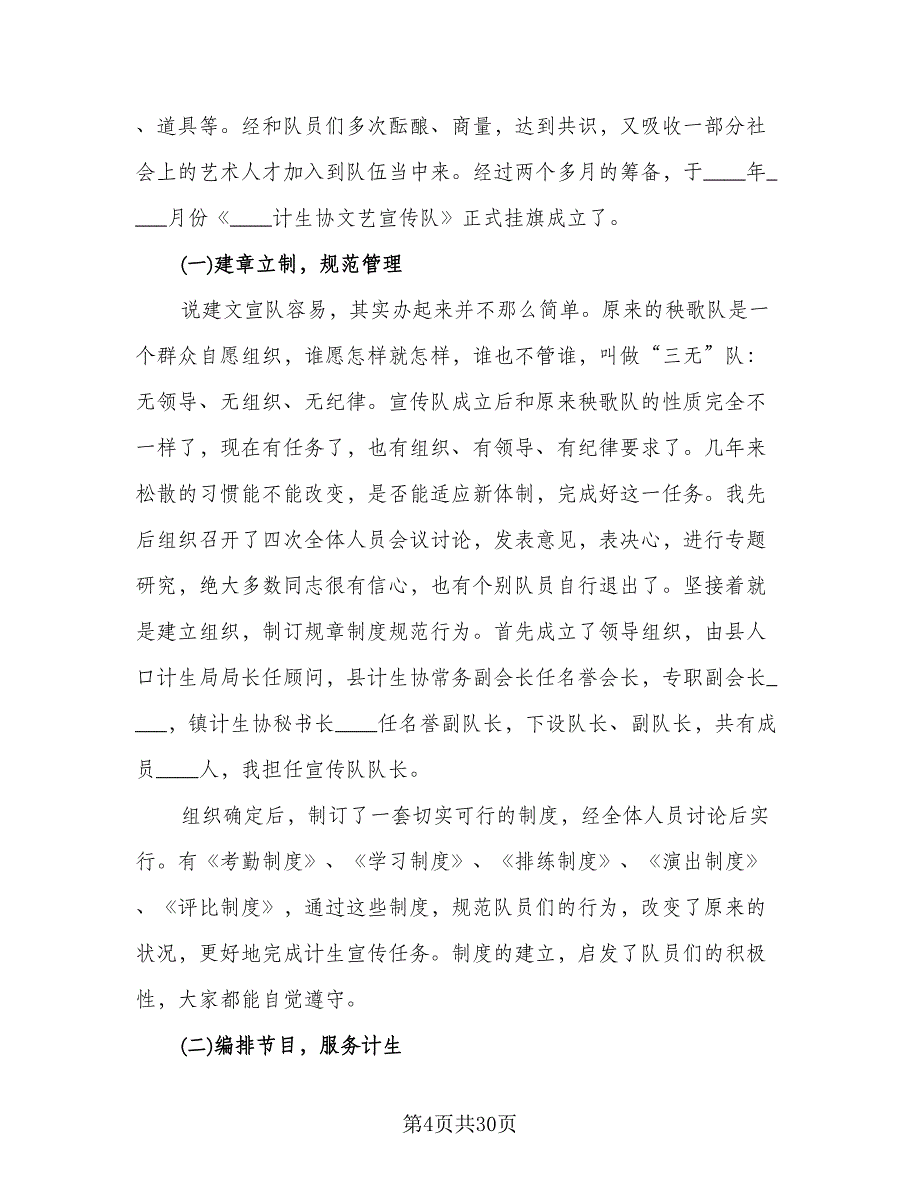 、道具等。经和队员们多次酝酿、商量，达到共识，又吸收一部分社
会上的艺术人才加入到队伍当中来。经过两个多月的筹备，于____年_
___月份《____计生协文艺宣传队》正式挂旗成立了。
(一)建章立制，规范管理
说建文宣队容易，其实办起来并不那么简单。原来的秧歌队是一
个群众自愿组织，谁愿怎样就怎样，谁也不管谁，叫做“三无”队：
无领导、无组织、无纪律。宣传队成立后和原来秧歌队的性质完全不
一样了，现在有任务了，也有组织、有领导、有纪律要求了。几年来
松散的习惯能不能改变，是否能适应新体制，完成好这一任务。我先
后组织召开了四次全体人员会议讨论，发表意见，表决心，进行专题
研究，绝大多数同志很有信心，也有个别队员自行退出了。坚接着就
是建立组织，制订规章制度规范行为。首先成立了领导组织，由县人
口计生局局长任顾问，县计生协常务副会长任名誉会长，专职副会长_
___，镇计生协秘书长____任名誉副队长，下设队长、副队长，共有成
员____人，我担任宣传队队长。
组织确定后，制订了一套切实可行的制度，经全体人员讨论后实
行。有《考勤制度》、《学习制度》、《排练制度》、《演出制度》
、《评比制度》，通过这些制度，规范队员们的行为，改变了原来的
状况，更好地完成计生宣传任务。制度的建立，启发了队员们的积极
性，大家都能自觉遵守。
(二)编排节目，服务计生
第4页共30页